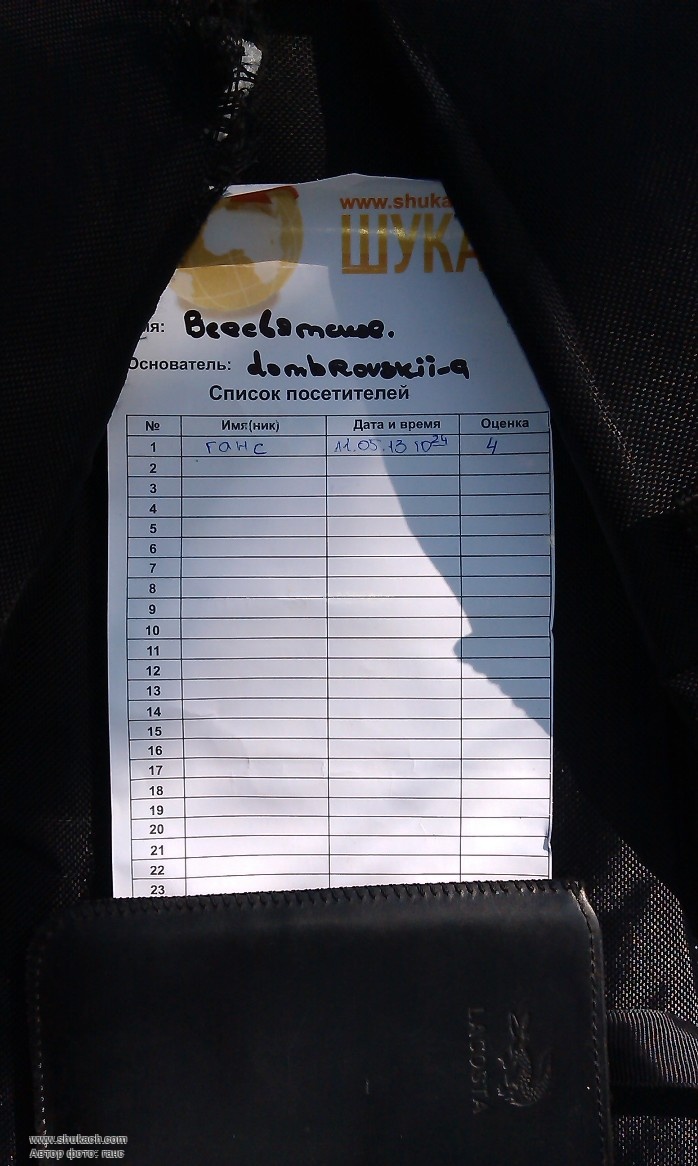 www.shuka
ШУКА
ия: Всесвятское.
Основатель: dombrovskii-a
Список посетителей
№ Имя(ник) Дата и время Оценка
1 ганс 11.05.13 10 24 4
2
3
4
5
6
7
8
9
10
11
12
13
14
15
16
17
18
19
20
21
22
23
LACOSTA
www.shukach.com
Автор фото: ганс